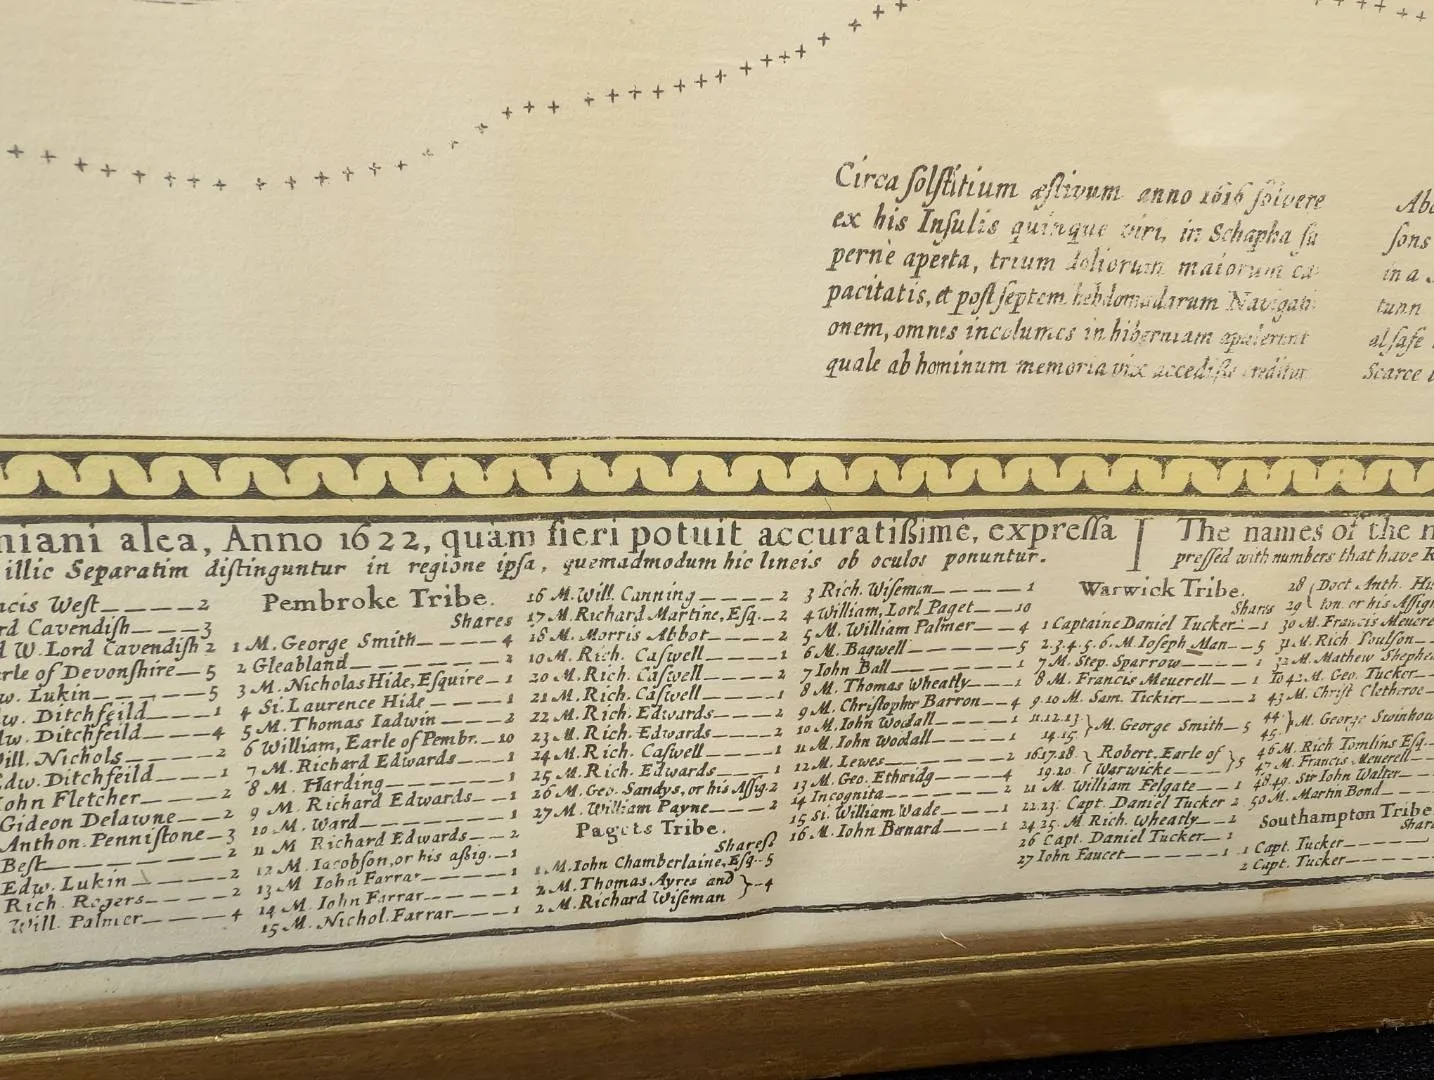 Circa ſolſtitium æſtivum anno 1616 ſolvere
ex his Inſulis quinque viri, in Schapha ſu
pernè aperta, trium doliorum maiorum ca
pacitatis, et poſt ſeptem hebdomadarum Navigati
onem, omnes incolumes in hiberniam apulerunt
quale ab hominum memoria vix accediſſe creditur
ſons
in a
al ſafe
Scarce
niani alea, Anno 1622, quàm fieri potuit accuratißime, expreſſa
illic Separatim diſtinguntur in regione ipſa, quemadmodum hic lineis ob oculos ponuntur.
The names of the
preſſed with numbers that have
ncis Weſt 2
rd Cavendiſh 3
W. Lord Cavendiſh 2
erle of Devonſhire 5
w. Lukin 5
w. Ditchfeild 1
dw. Ditchfeild 4
Will. Nichols 2
Edw. Ditchfeild 1
ohn Fletcher 2
Gideon Delawne 2
Anthon. Penniſtone 3
Beſt 2
Edw. Lukin 2
Rich. Rogers 2
Will. Palmer 4
Pembroke Tribe.
Shares
1 M. George Smith 4
2 Gleabland 2
3 M. Nicholas Hide, Eſquire 1
4 Si. Laurence Hide 1
5 M. Thomas Iadwin 2
6 William, Earle of Pembr. 10
7 M. Richard Edwards 1
8 M. Harding 1
9 M. Richard Edwards 1
10 M. Ward 1
11 M Richard Edwards 2
12 M. Iacobſon, or his aßig. 1
13 M Iohn Farrar 1
14 M. Iohn Farrar 1
15 M. Nichol. Farrar 1
16 M. Will. Canning 2
17 M. Richard Martine, Eſq. 2
18 M. Morris Abbot 2
19 M. Rich. Caſwell 1
20 M. Rich. Caſwell 2
21 M. Rich. Caſwell 1
22 M. Rich. Edwards 2
23 M. Rich. Edwards 2
24 M. Rich. Caſwell 1
25 M. Rich. Edwards 1
26 M. Geo. Sandys, or his Aſſig. 2
27 M. William Payne 2
Pagets Tribe.
Shares
1 M. Iohn Chamberlaine, Eſq. 5
2 M. Thomas Ayres and
2 M. Richard Wiſeman } 4
3 Rich. Wiſeman 1
4 William, Lord Paget 10
5 M. William Palmer 4
6 M. Bagwell 5
7 Iohn Ball 1
8 M. Thomas Wheatly 1
9 M. Chriſtopher Barron 4
10 M. Iohn Wodall 1
11 M. Iohn Wodall 1
12 M. Lewes 2
13 M. Geo. Etheridg 4
14 Incognita 2
15 Si. William Wade 1
16 M. Iohn Bernard 1
Warwick Tribe.
Shares
1 Captaine Daniel Tucker 1
2.3.4.5.6. M. Ioſeph Man 5
7 M. Step. Sparrow 1
8 M. Francis Meuerell 1
9.10 M. Sam. Tickier 2
11.12.13
14.15. } M. George Smith 5
16.17.18 { Robert. Earle of
19.20 { Warwicke } 5
21 M. William Felgate 1
22.23: Capt. Daniel Tucker 2
24.25. M Rich. Wheatly 2
26 Capt. Daniel Tucker 1
27 Iohn Faucet 1
28 { Doct Anth.
29 { ton. or his Aſſign
30 M. Francis Meuerel
31 M. Rich. Poulſon
32 M. Mathew
to 42 M. Geo. Tucker
43 M. Chriſt Cletheroe
44
45 } M. George
46 M. Rich Tomlins Eſq.
47 M. Francis Meuerell
48.49. Sir Iohn Walter
50 M. Martin Bond
Southampton Tribe
Share
1 Capt. Tucker
2 Capt. Tucker